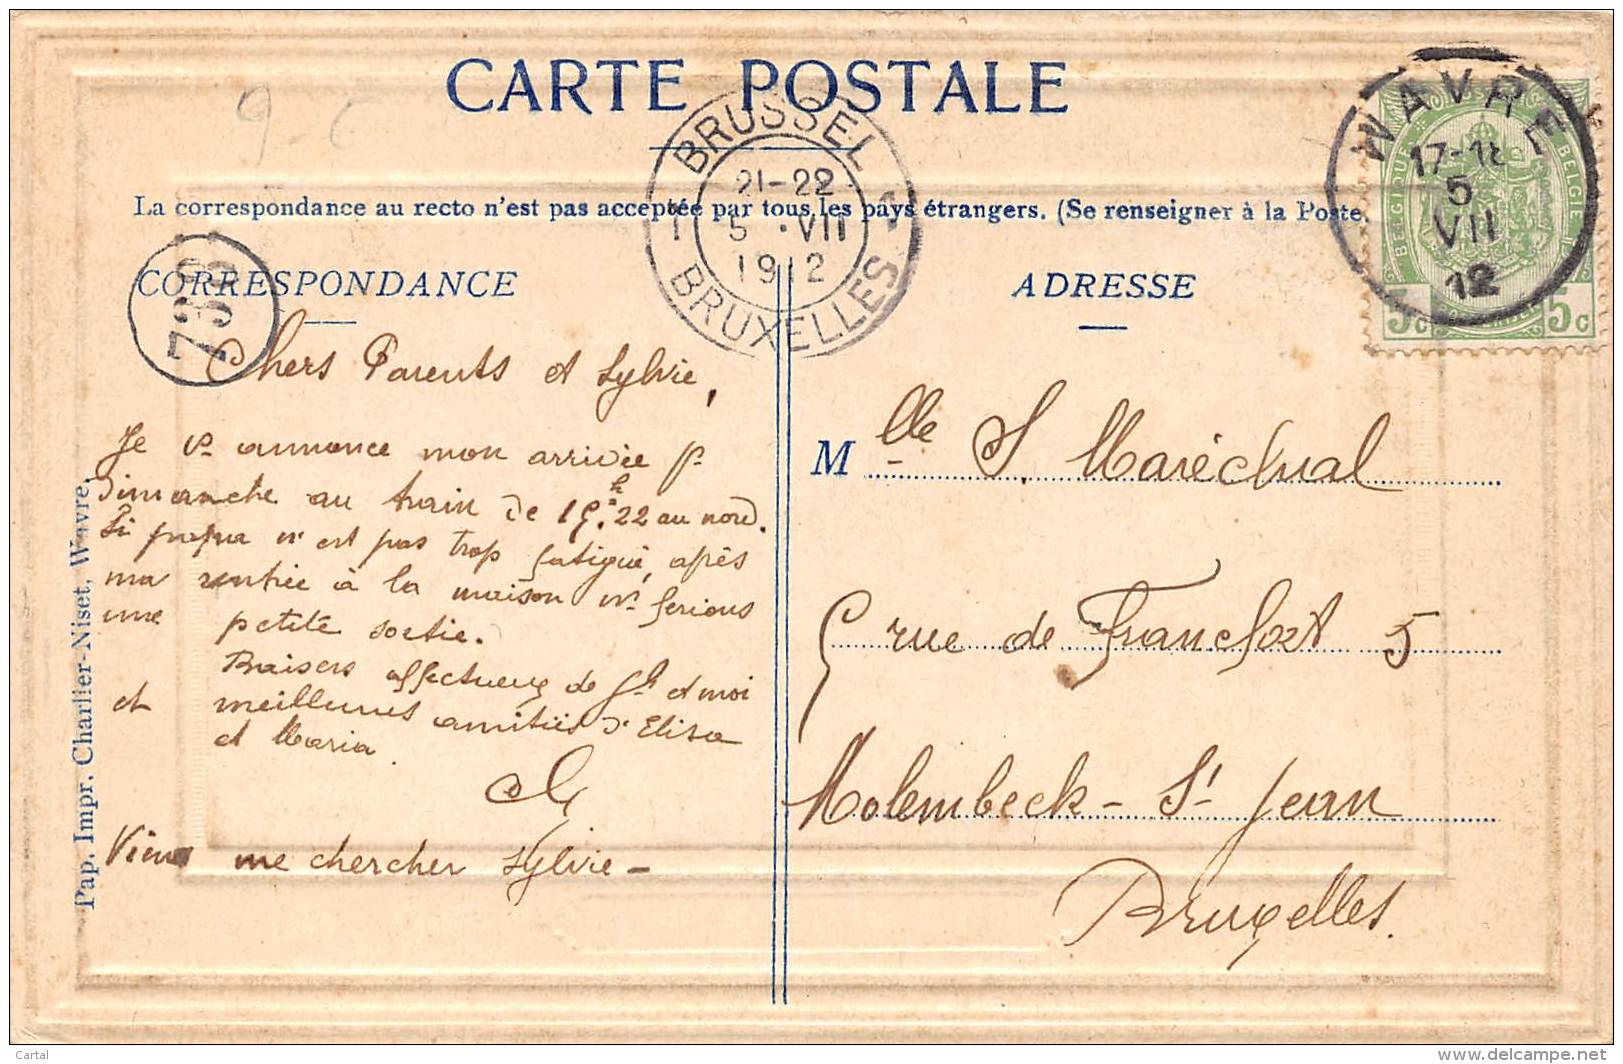 CARTE POSTALE
La correspondance au recto n'est pas acceptée par tous les pays étrangers. (Se renseigner à la Poste
BRUSSEL
21-22
5 VII
1912
BRUXELLES
WAVRE
17-18
5
VII
12
BELGIQUE
BELGIE
5c 5c
738
CORRESPONDANCE
Chers Parents et Sylvie,
Je vs annonce mon arrivée pr
Dimanche au train de 15h22 au nord.
Si papa n'est pas trop fatigué, après
ma rentrée à la maison ns ferions
une petite sortie.
Baisers affectueux de et moi
et meilleures amitiés d'Elisa
et Maria.
Viens me chercher Sylvie -
Pap. Impr. Charlier-Niset, Wavre.
ADRESSE
Mlle S. Maréchal
5 rue de Francfort 5
Molembeck - St Jean
Bruxelles.
Cartal
www.delcampe.net